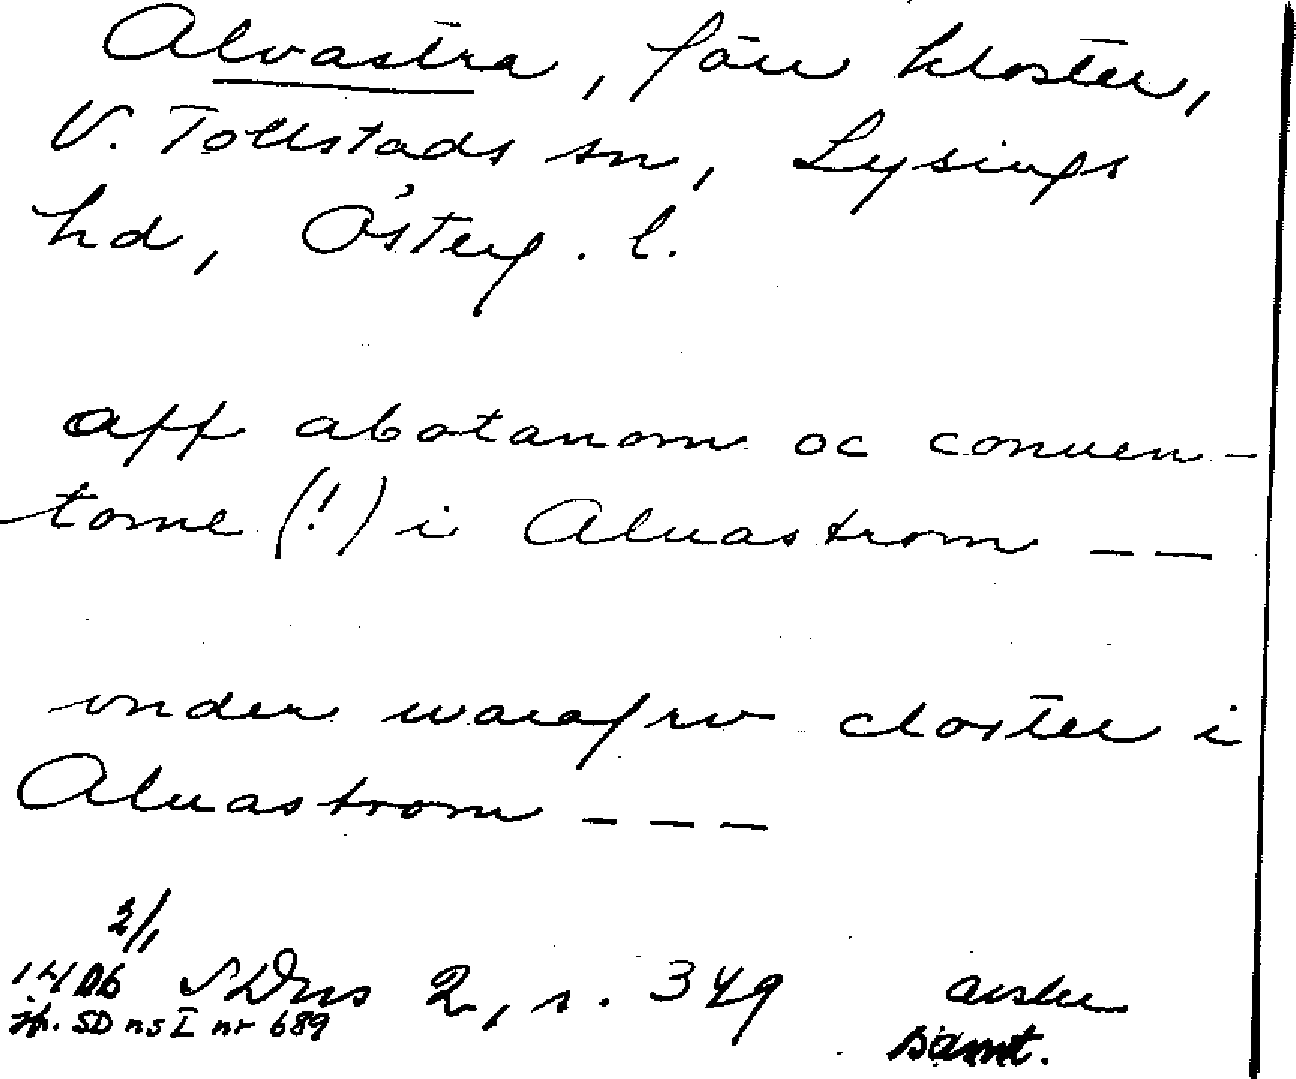 Alvastra, förr kloster,
V. Tollstads sn, Lysings
hd, Österg. l.
aff abotanom oc conuen-
tome (!) i Aluastrom _ _
vnder warafrv closter i
Aluastrom _ _ _
2/1
1406 SDns 2, s. 349
jfr. SD ns I nr 689
samt.